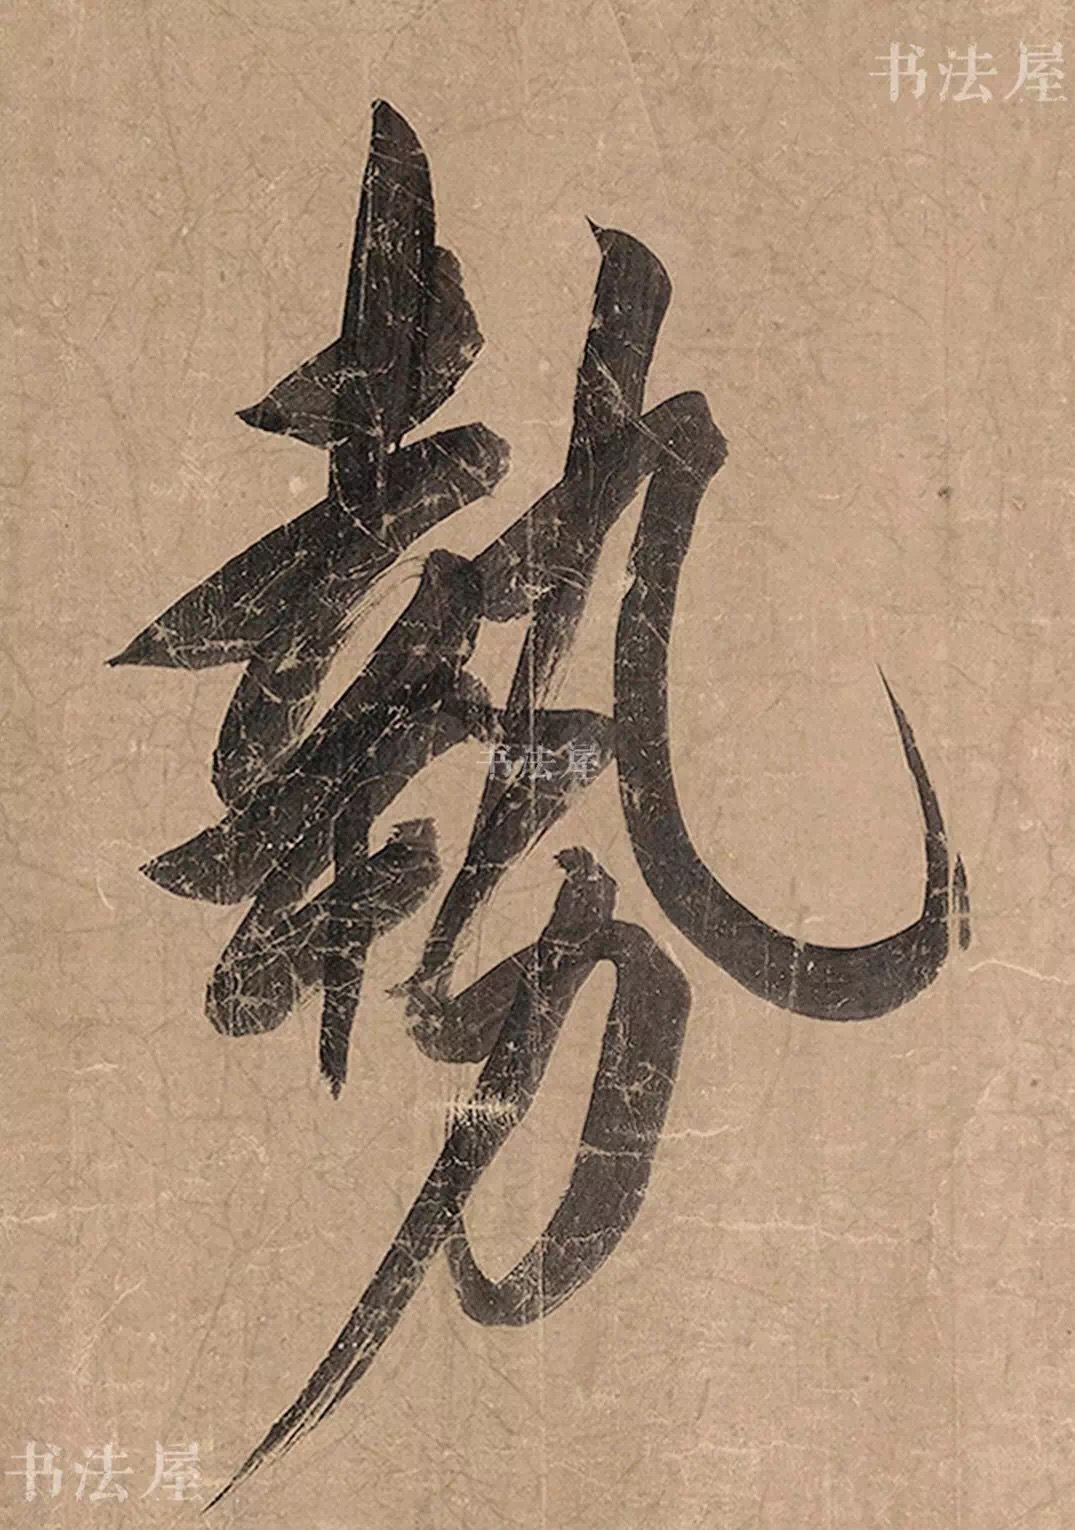 书法屋
势
书法屋
书法屋